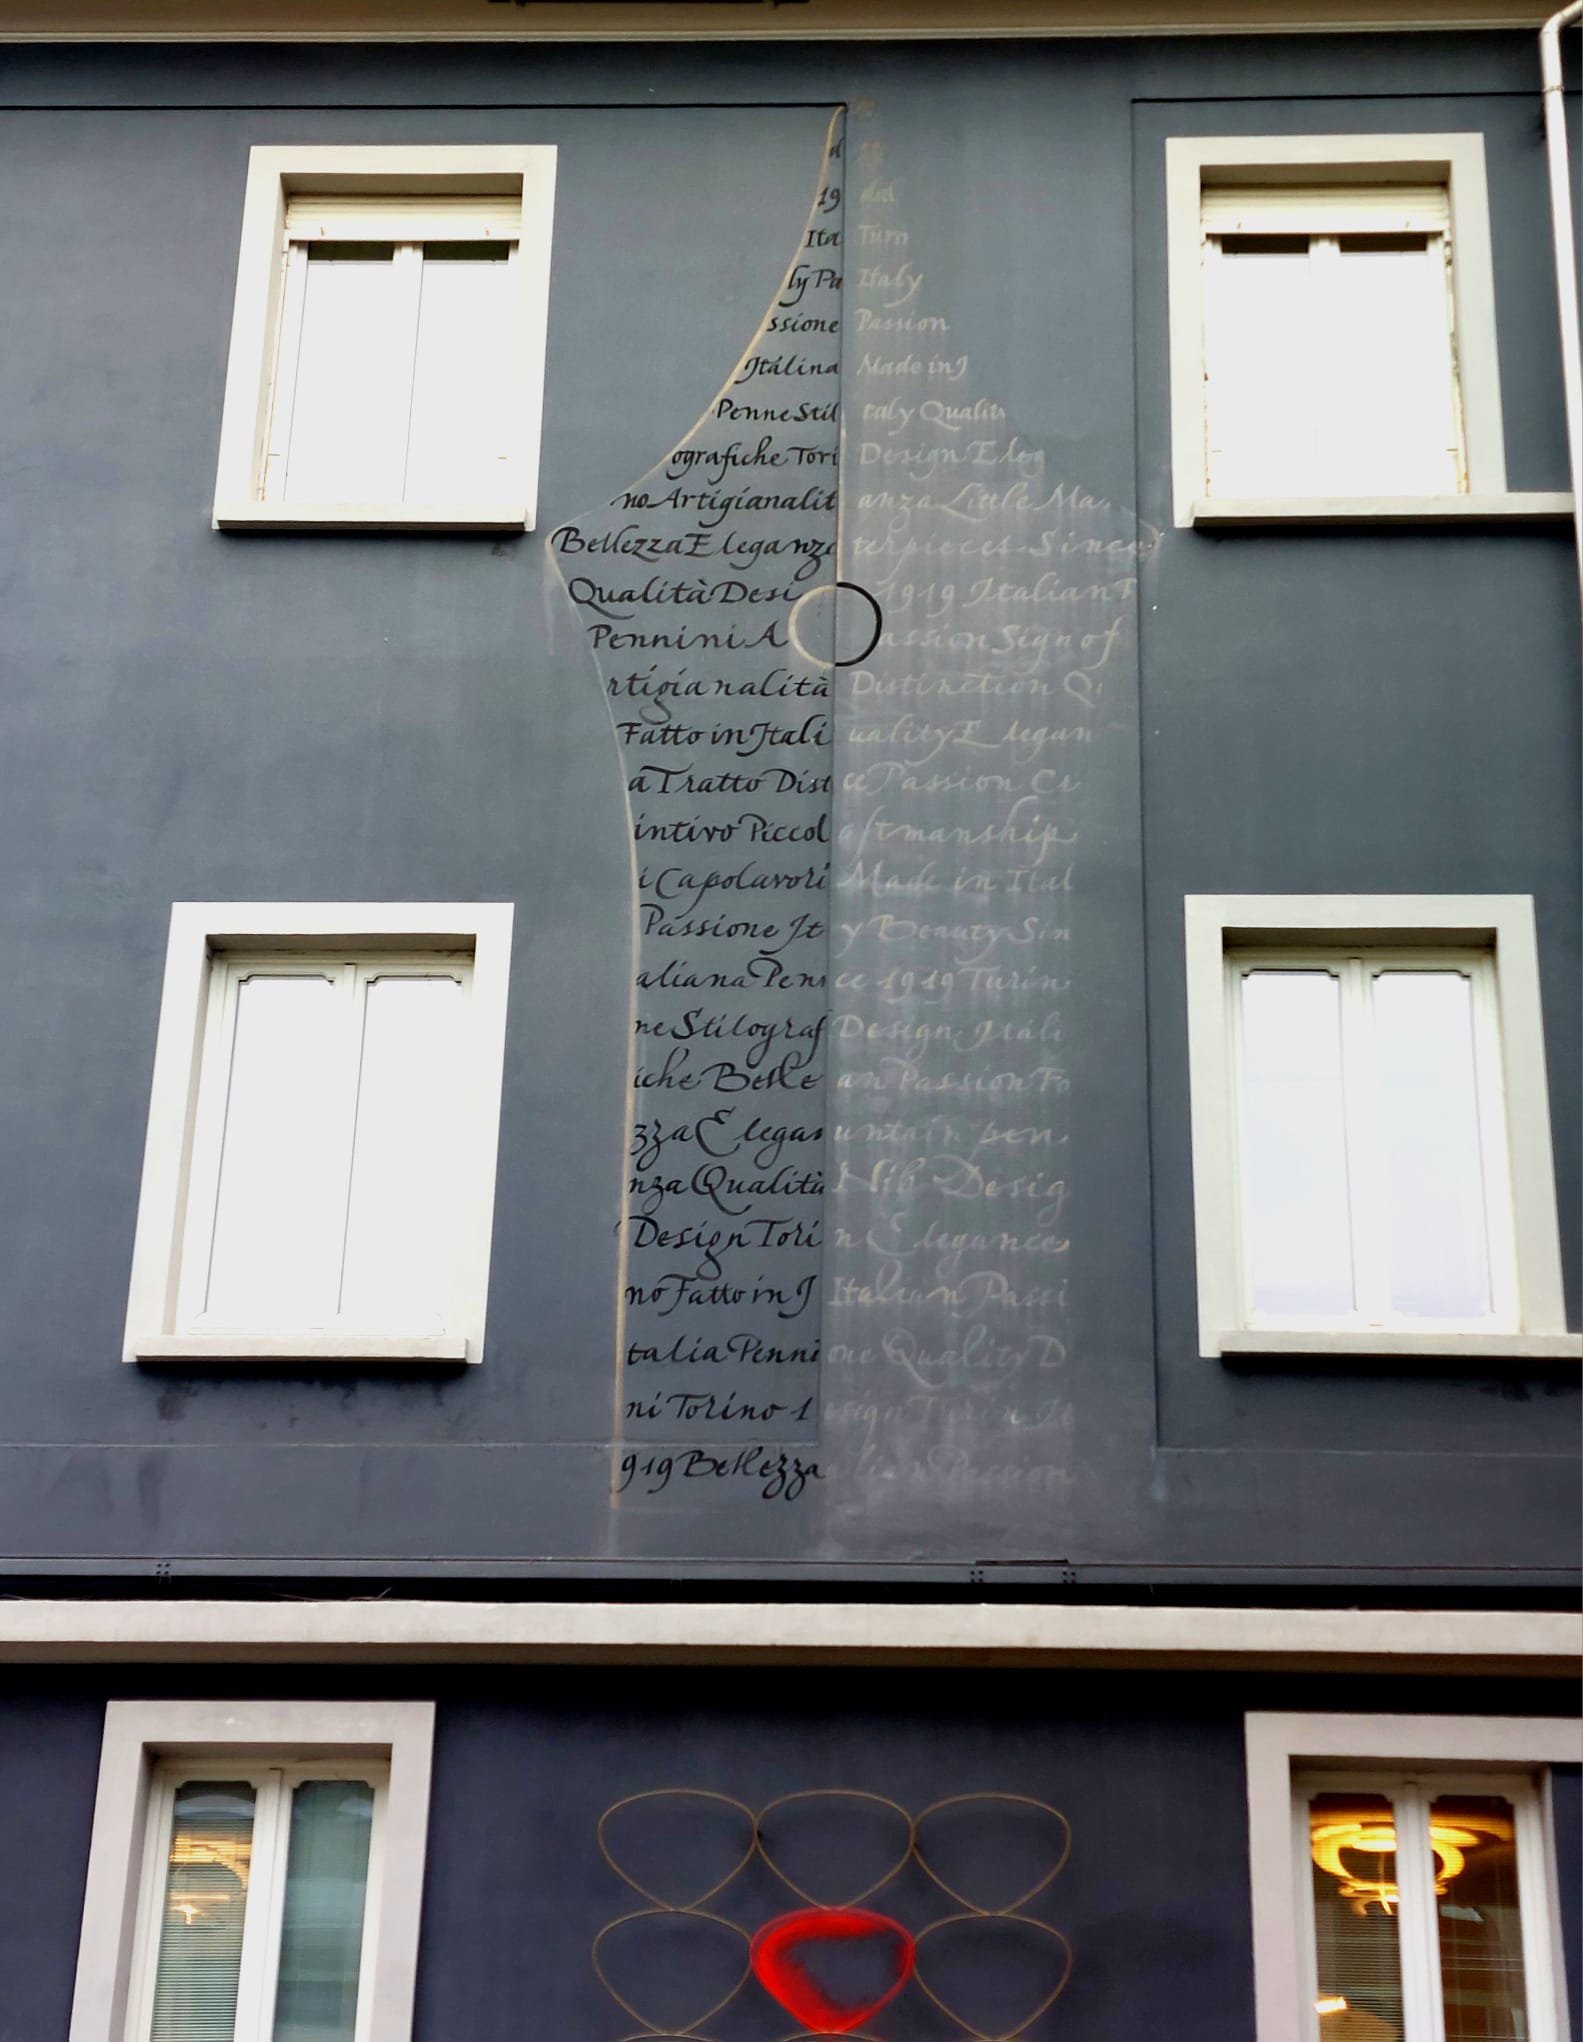 d
19 dal
Ita Turn
ly Pa Italy
ssione Passion
Italina Made in I
Penne Stil taly Qualit
ografiche Tori Design Eleg
no Artigianalit anza Little Ma
Bellezza Eleganza terpieces Since
Qualità Desi 1919 Italian P
Pennini A assion Sign of
rtigianalità Distinction Q
Fatto in Itali uality Elegan
a Tratto Dist ce Passion Cr
intivo Piccol aftmanship
i Capolavori Made in Ital
Passione It y Beauty Sin
aliana Pen ce 1919 Turin
ne Stilograf Design Itali
iche Belle an Passion Fo
zza Elegan untain pen
nza Qualità Nib Desig
Design Tori n Elegance
no Fatto in I Italian Passi
talia Penni one Quality D
ni Torino 1 esign Turin It
919 Bellezza alian Passion